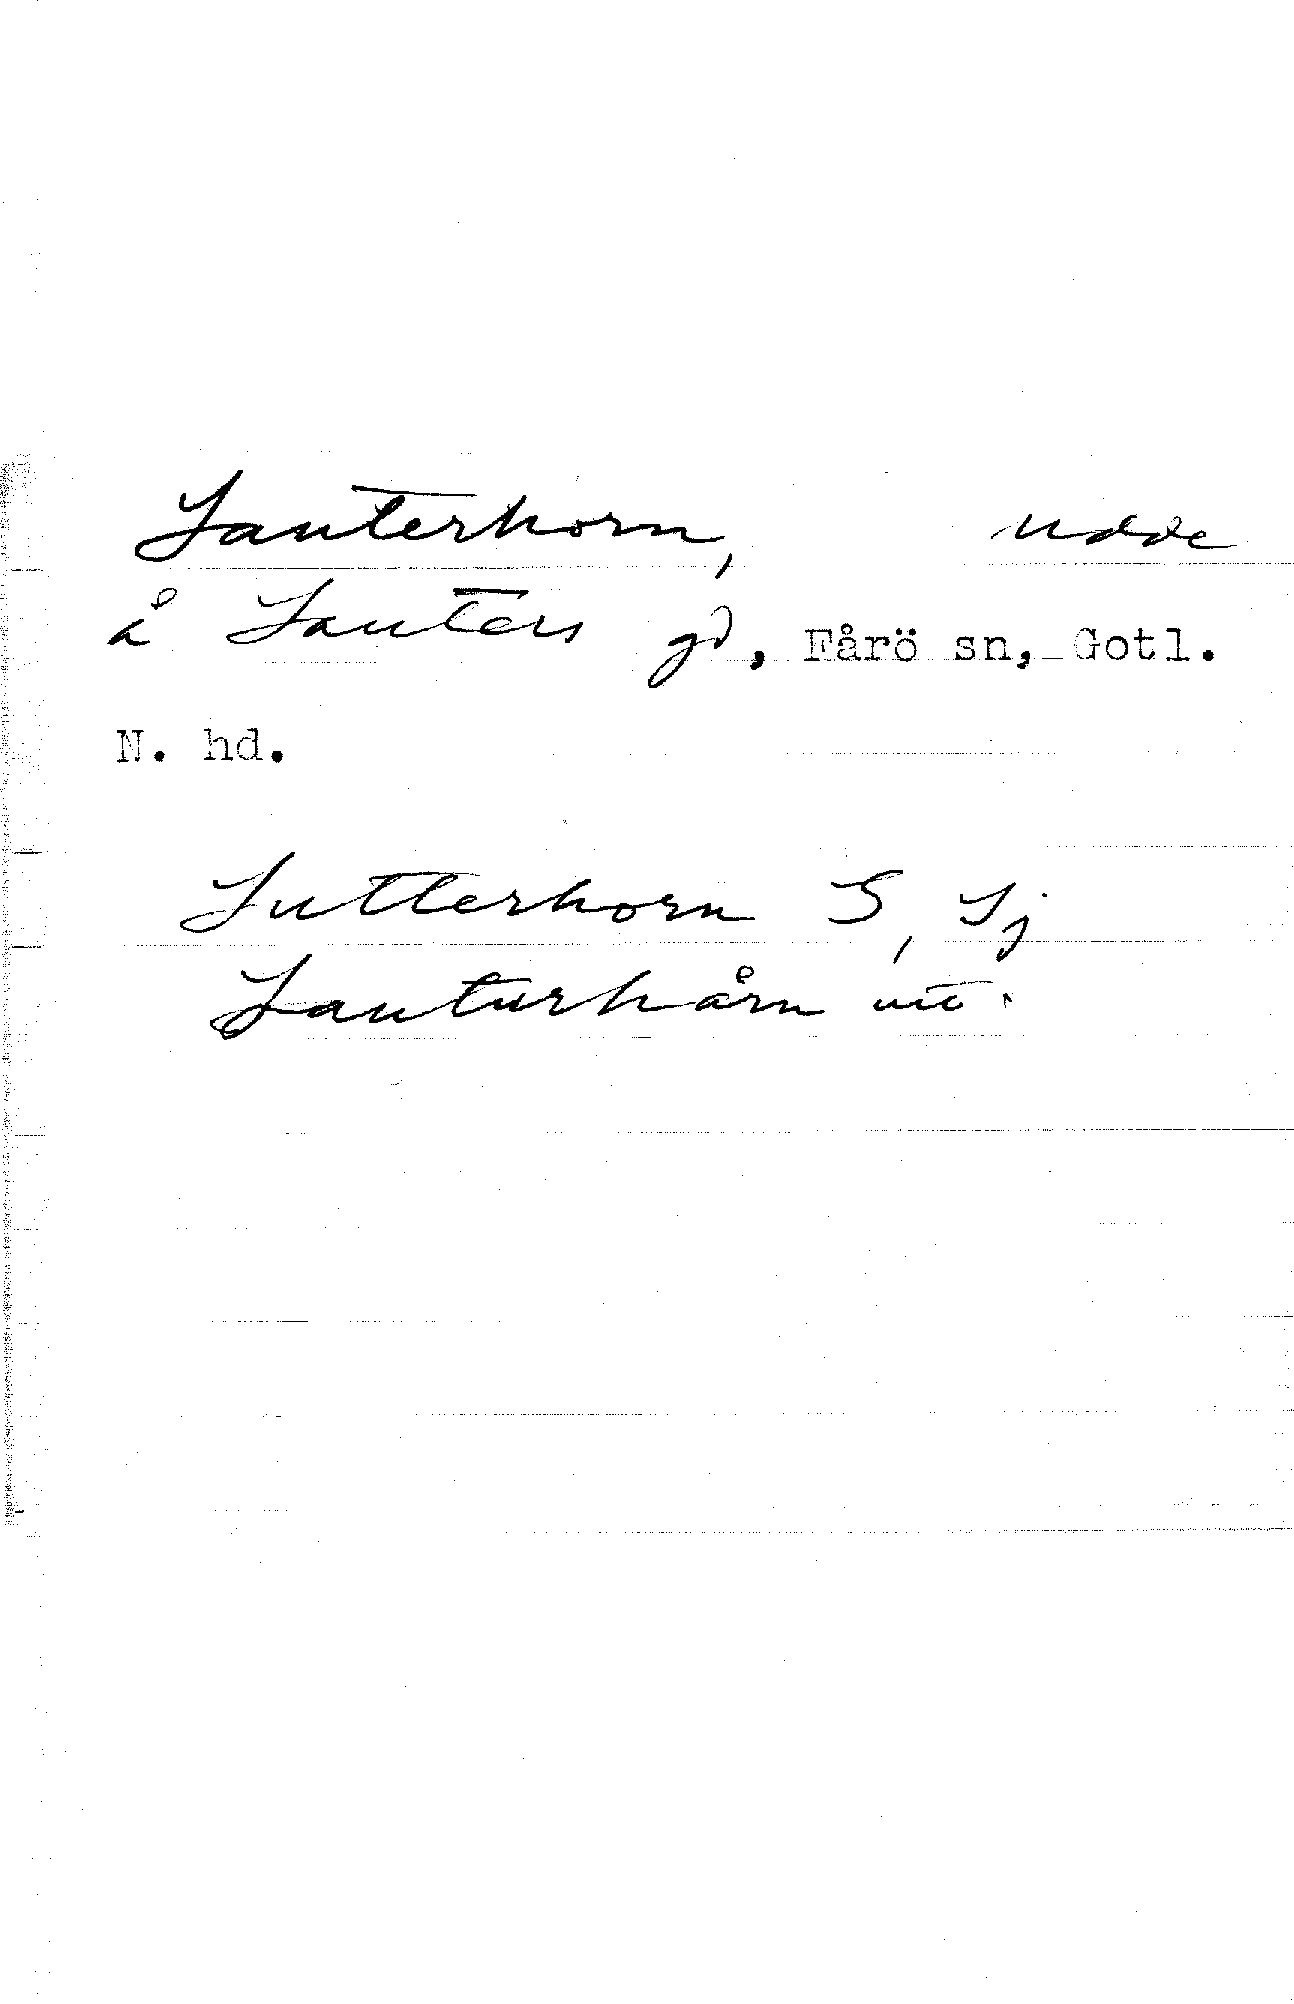 Lauterhorn, udde
å Lauters gd, Fårö sn, Gotl.
N. hd.
Lutterhorn S, Sj
Lauturhårn utt.